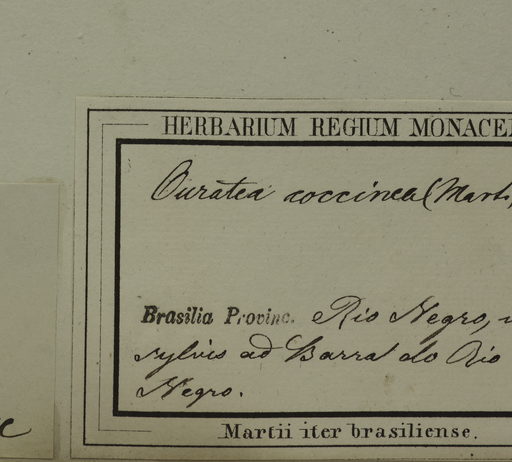 HERBARIUM REGIUM MONACE
Ouratea coccinea (Mart.,
Brasilia Provinc. Rio Negro,
sylvis ad Barra do Rio
Negro.
Martii iter brasiliense.